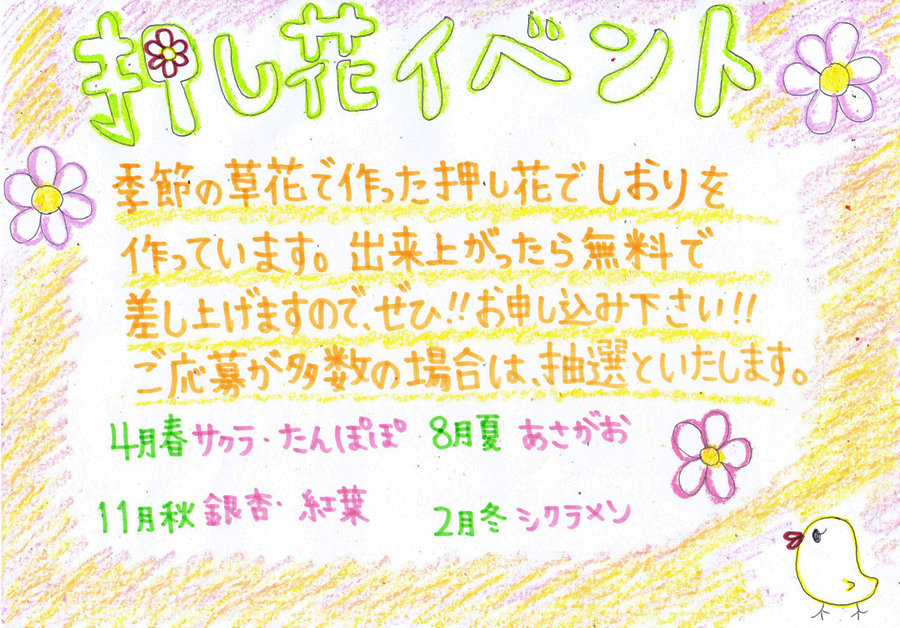 押し花イベント
季節の草花で作った押し花でしおりを
作っています。出来上がったら無料で
差し上げますので、ぜひ!!お申し込み下さい!!
ご応募が多数の場合は、抽選といたします。
4月春 サクラ・たんぽぽ 8月夏 あさがお
11月秋 銀杏・紅葉 2月冬 シクラメン